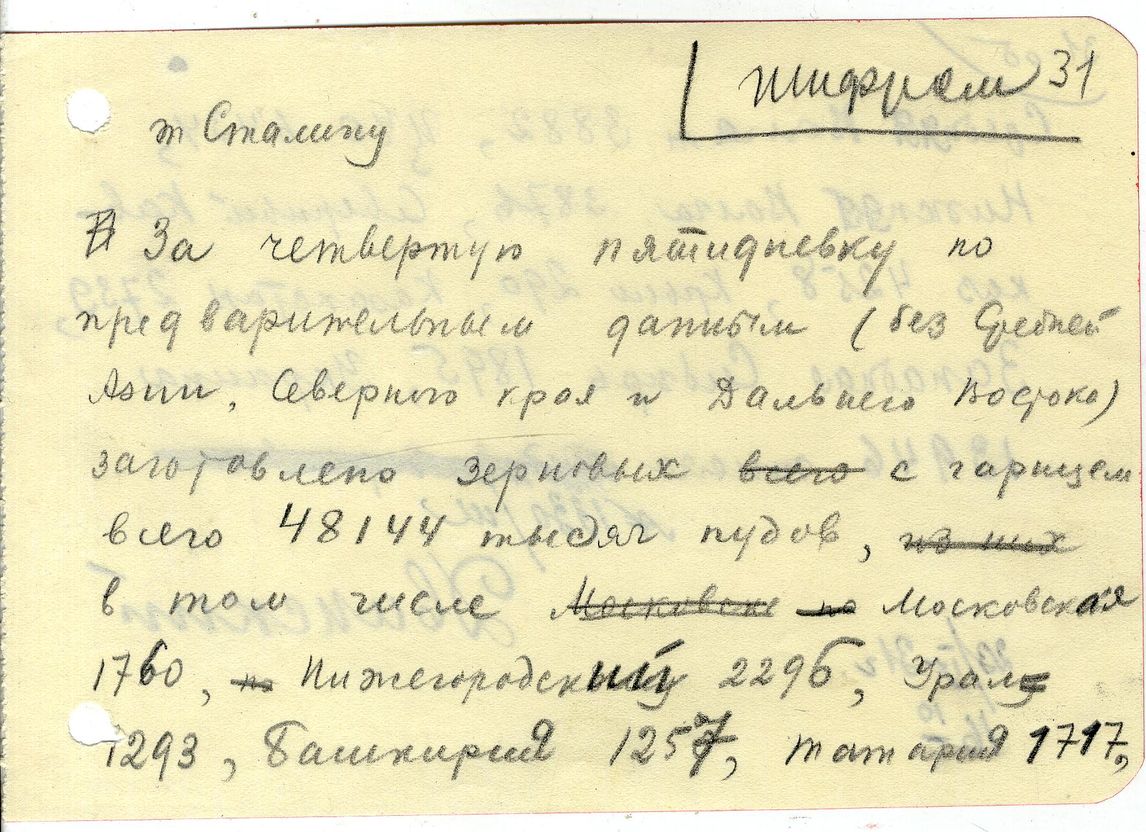 шифром 31
т Сталину
За четвертую пятидневку по
предварительным данным (без Средней
Азии, Северного края и Дальнего Востока)
заготовлено зерновых всего с гарнцем
всего 48144 тысяч пудов, из них
в том числе Московские по Московская
1760, по Нижегородский 2296, Урал
1293, Башкирия 1257, Татария 1717,